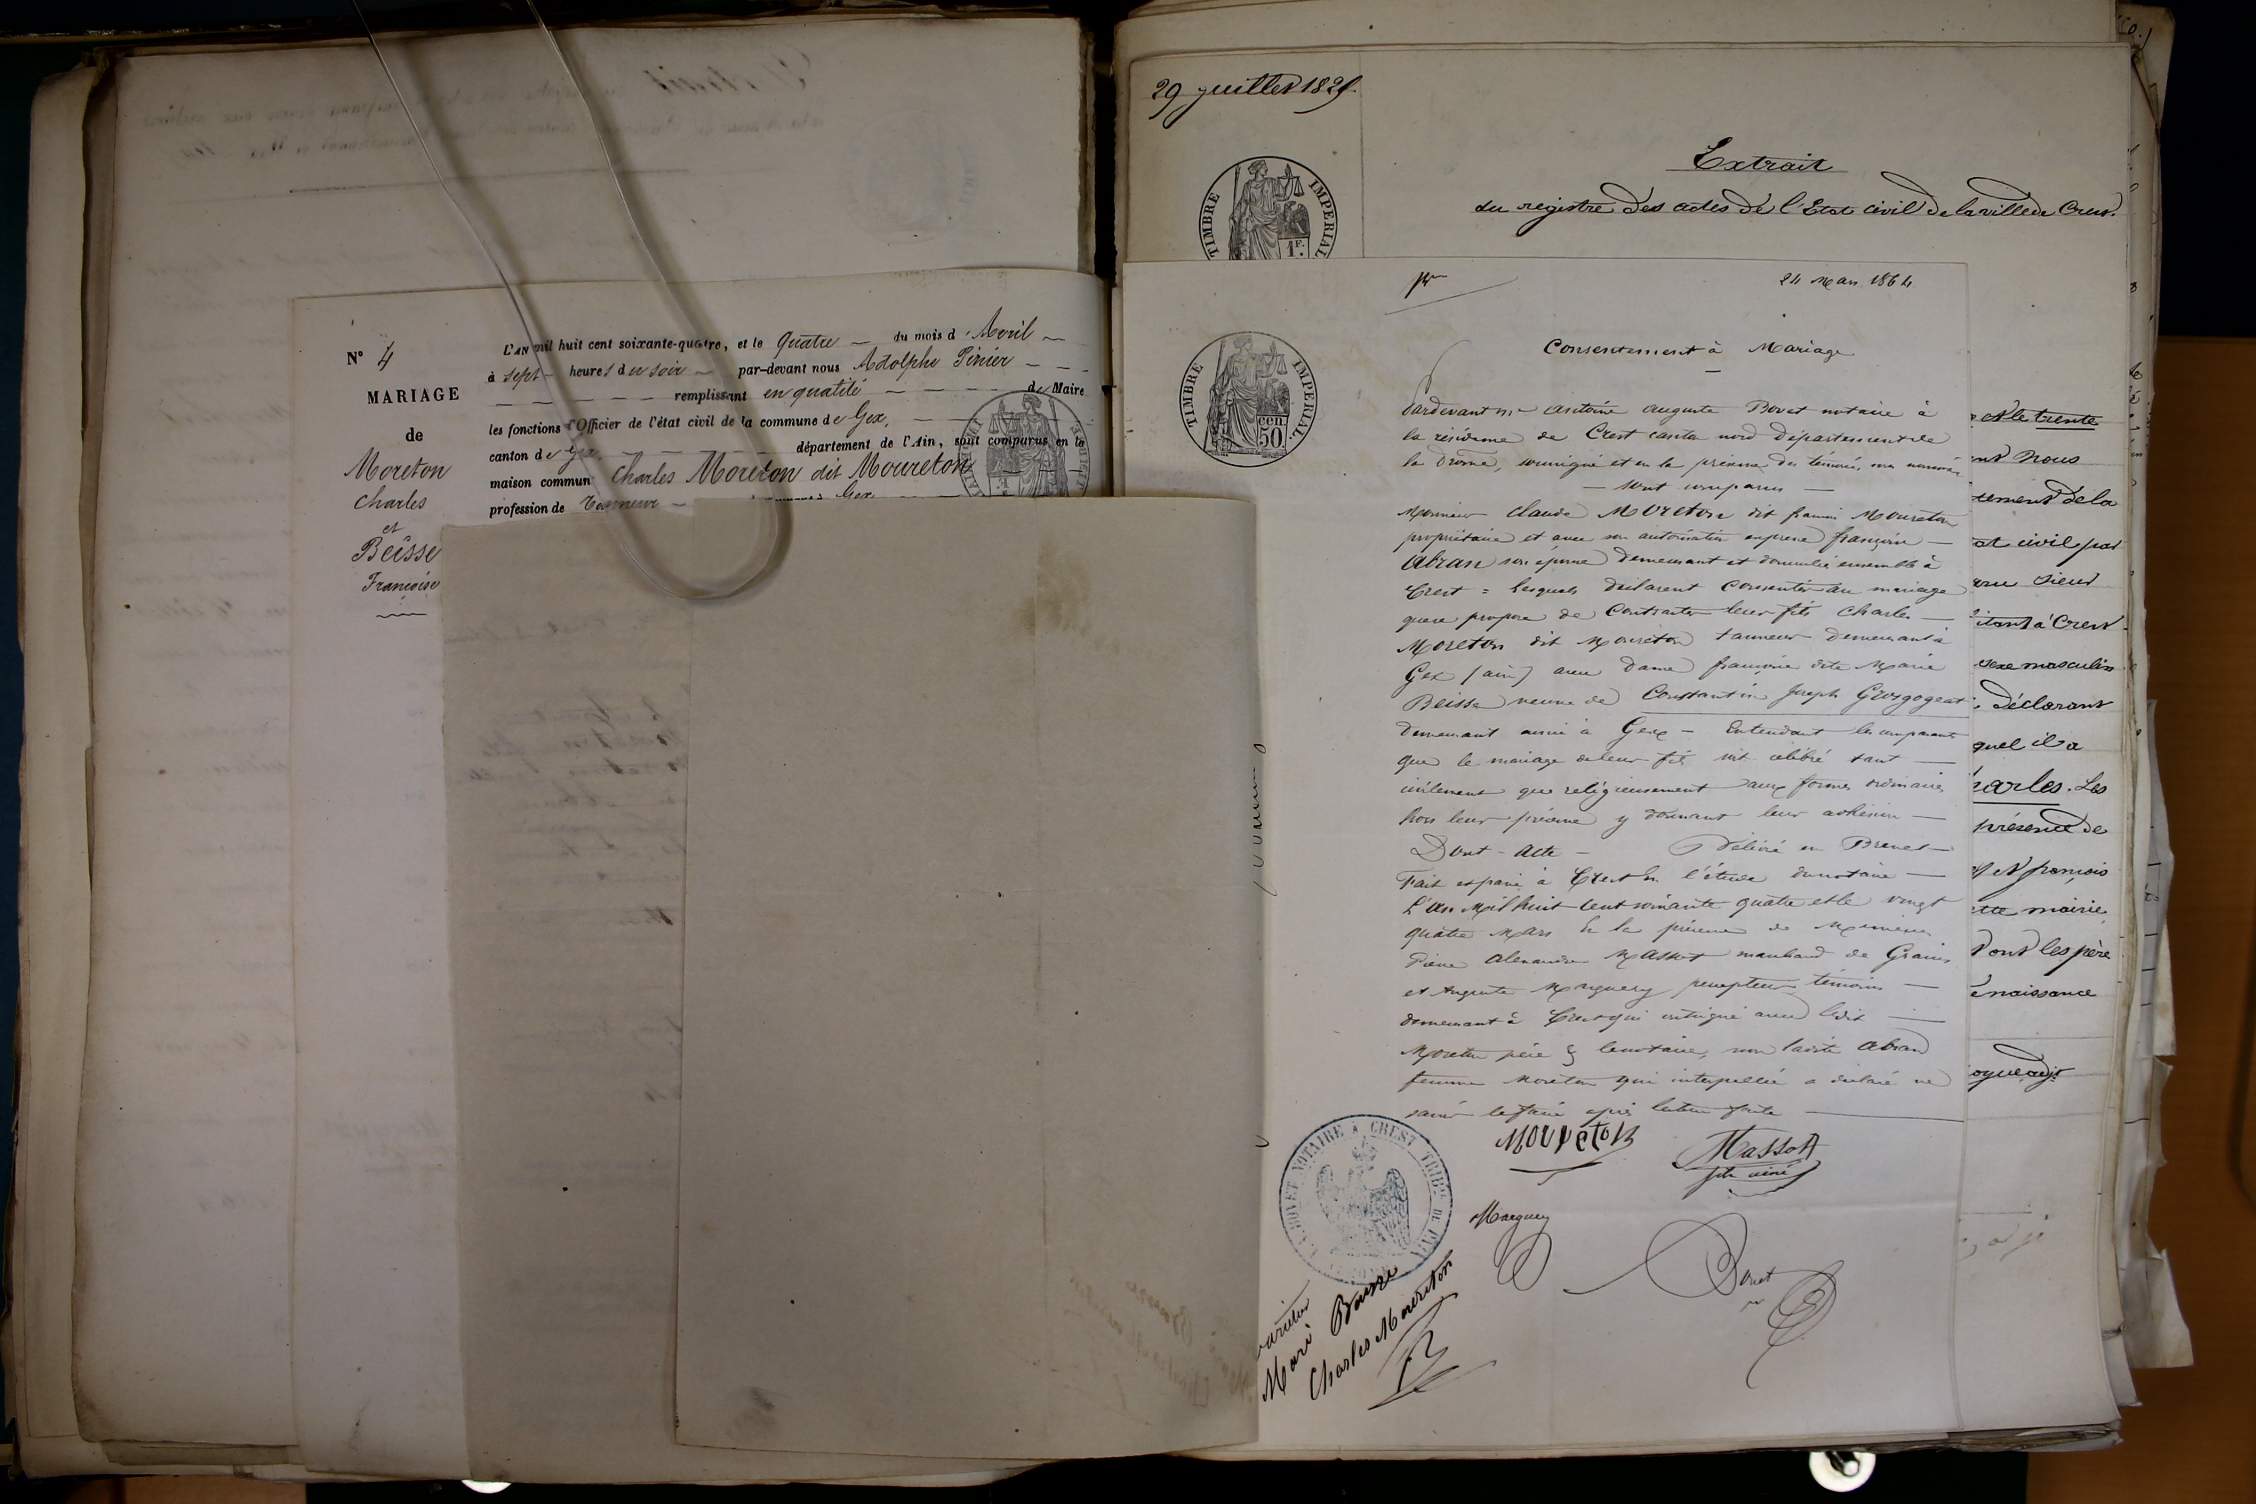 N° 4
MARIAGE
de
Moreton
Charles
et
Beisse
Françoise
L'AN mil huit cent soixante-quatre, et le quatre du mois d'Avril
à sept heures du soir par-devant nous Adolphe
remplissant en qualité de Maire
les fonctions d'Officier de l'état civil de la commune de Gex,
canton de Gex département de l'Ain, sont comparus en la
maison commune Charles Moreton dit Moureton
profession de Tanneur Gex
29 juillet 182
TIMBRE IMPERIAL
1F.
Extrait
du registre des actes de l'Etat civil de la ville de Crest.
24 Mars 1864
TIMBRE IMPERIAL
50 cen.
Consentement à Mariage
Pardevant Me Antoine Auguste Bovet notaire à
la résidence de Crest canton nord Département de
la Drome, soussigné et en la présence des témoins, ci après nommés
sont comparus
Monsieur Claude Moreton dit Moureton
propriétaire et avec son autorisation expresse françoise
Abran son épouse demeurant et domiciliés ensemble à
Crest = Lesquels déclarent consentir au mariage
que se propose de contracter leur fils Charles
Moreton dit Moureton tanneur demeurant à
Gex (ain) avec Dame françoise dite Marie
Beisse veuve de Constantin Joseph Grosgogeat
demeurant aussi à Gex - Entendant les comparants
que le mariage de leur fils soit célébré tant
civilement que religieusement aux formes ordinaires
hors leur présence y donnant leur adhésion
Dont - acte - Délivré en Brevet
Fait et passé à Crest en l'étude du notaire
L'an Mil huit cent soixante quatre et le vingt
quatre Mars En la présence de Messieurs
Pierre Alexandre Massot marchand de Grains
et Auguste Marguery percepteur témoins
demeurant à Crest qui ont signé avec ledit
Moreton père & le notaire, non ladite Abran
femme Moreton qui interpellée a déclaré ne
savoir le faire après lecture faite
Moureton
Massot
fils ainé
Marguery
Bovet
BOVET NOTAIRE A CREST
Charles Moureton
et le trente
Nous
tement de la
at civil par
sieur
itant à Crest
sexe masculin
Déclarant
quel il a
harles. Les
présence de
et françois
ette mairie
dont les père
naissance